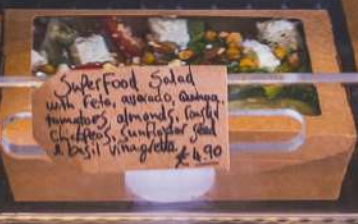 Superfood Salad
with Feta, avocado, Quinoa,
tomatoes, almonds, roasted
Chickpeas, Sunflower Seed
& basil vinagrette £4.90